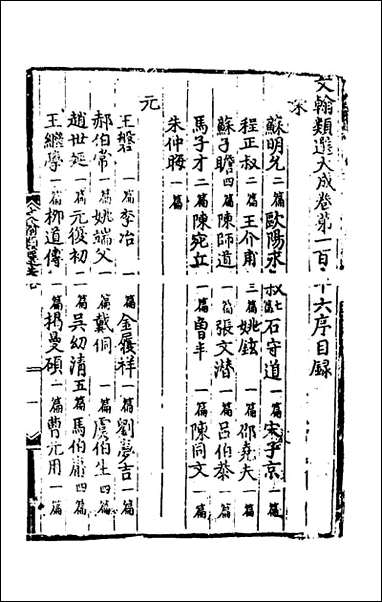 文翰類選大成卷第一百十六序目錄
宋
蘇明允二篇歐陽永叔七篇石守道一篇宋子京一篇
程正叔二篇王介甫三篇姚鉉一篇邵堯夫一篇
蘇子瞻四篇陳師道一篇張文潛一篇呂伯恭一篇
馬子才二篇陳宛丘一篇魯半一篇陳同文一篇
朱仲晦一篇
元
王磐一篇李冶一篇金履祥一篇劉夢吉一篇
郝伯常一篇姚端父一篇戴侗一篇虞伯生四篇
趙世延一篇元復初二篇吳幼清五篇馬伯庸四篇
王繼學一篇柳道傳一篇揭曼碩一篇曹元用一篇